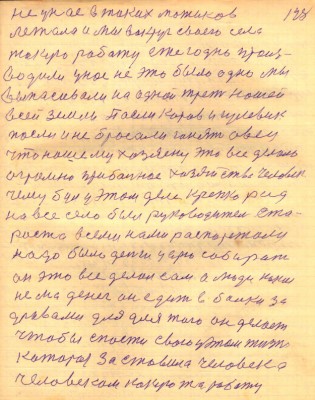 не у нас в таких мотиков 133
летала и мы вокруг своего села
такую работу ежегодно произ-
водили у нас не это было одно мы
выпасивали на одной трет нашей
всей земли Пасли Каров и гулевик
пасли и не бросали гонят овец
что нашему хозяену это все делала
огромно прибалное хозяйство Человек
чему был у этом деле крепко рад
на все село был руководител ста-
роста всеми нами распоржали
надо было денги царю собират
он это все делал сам а люди каки
не ма денег он едит в балки за
дровами для для того он делает
чтобы спасти свою утом жизн
Которая заставила человека
человеком какую та работу